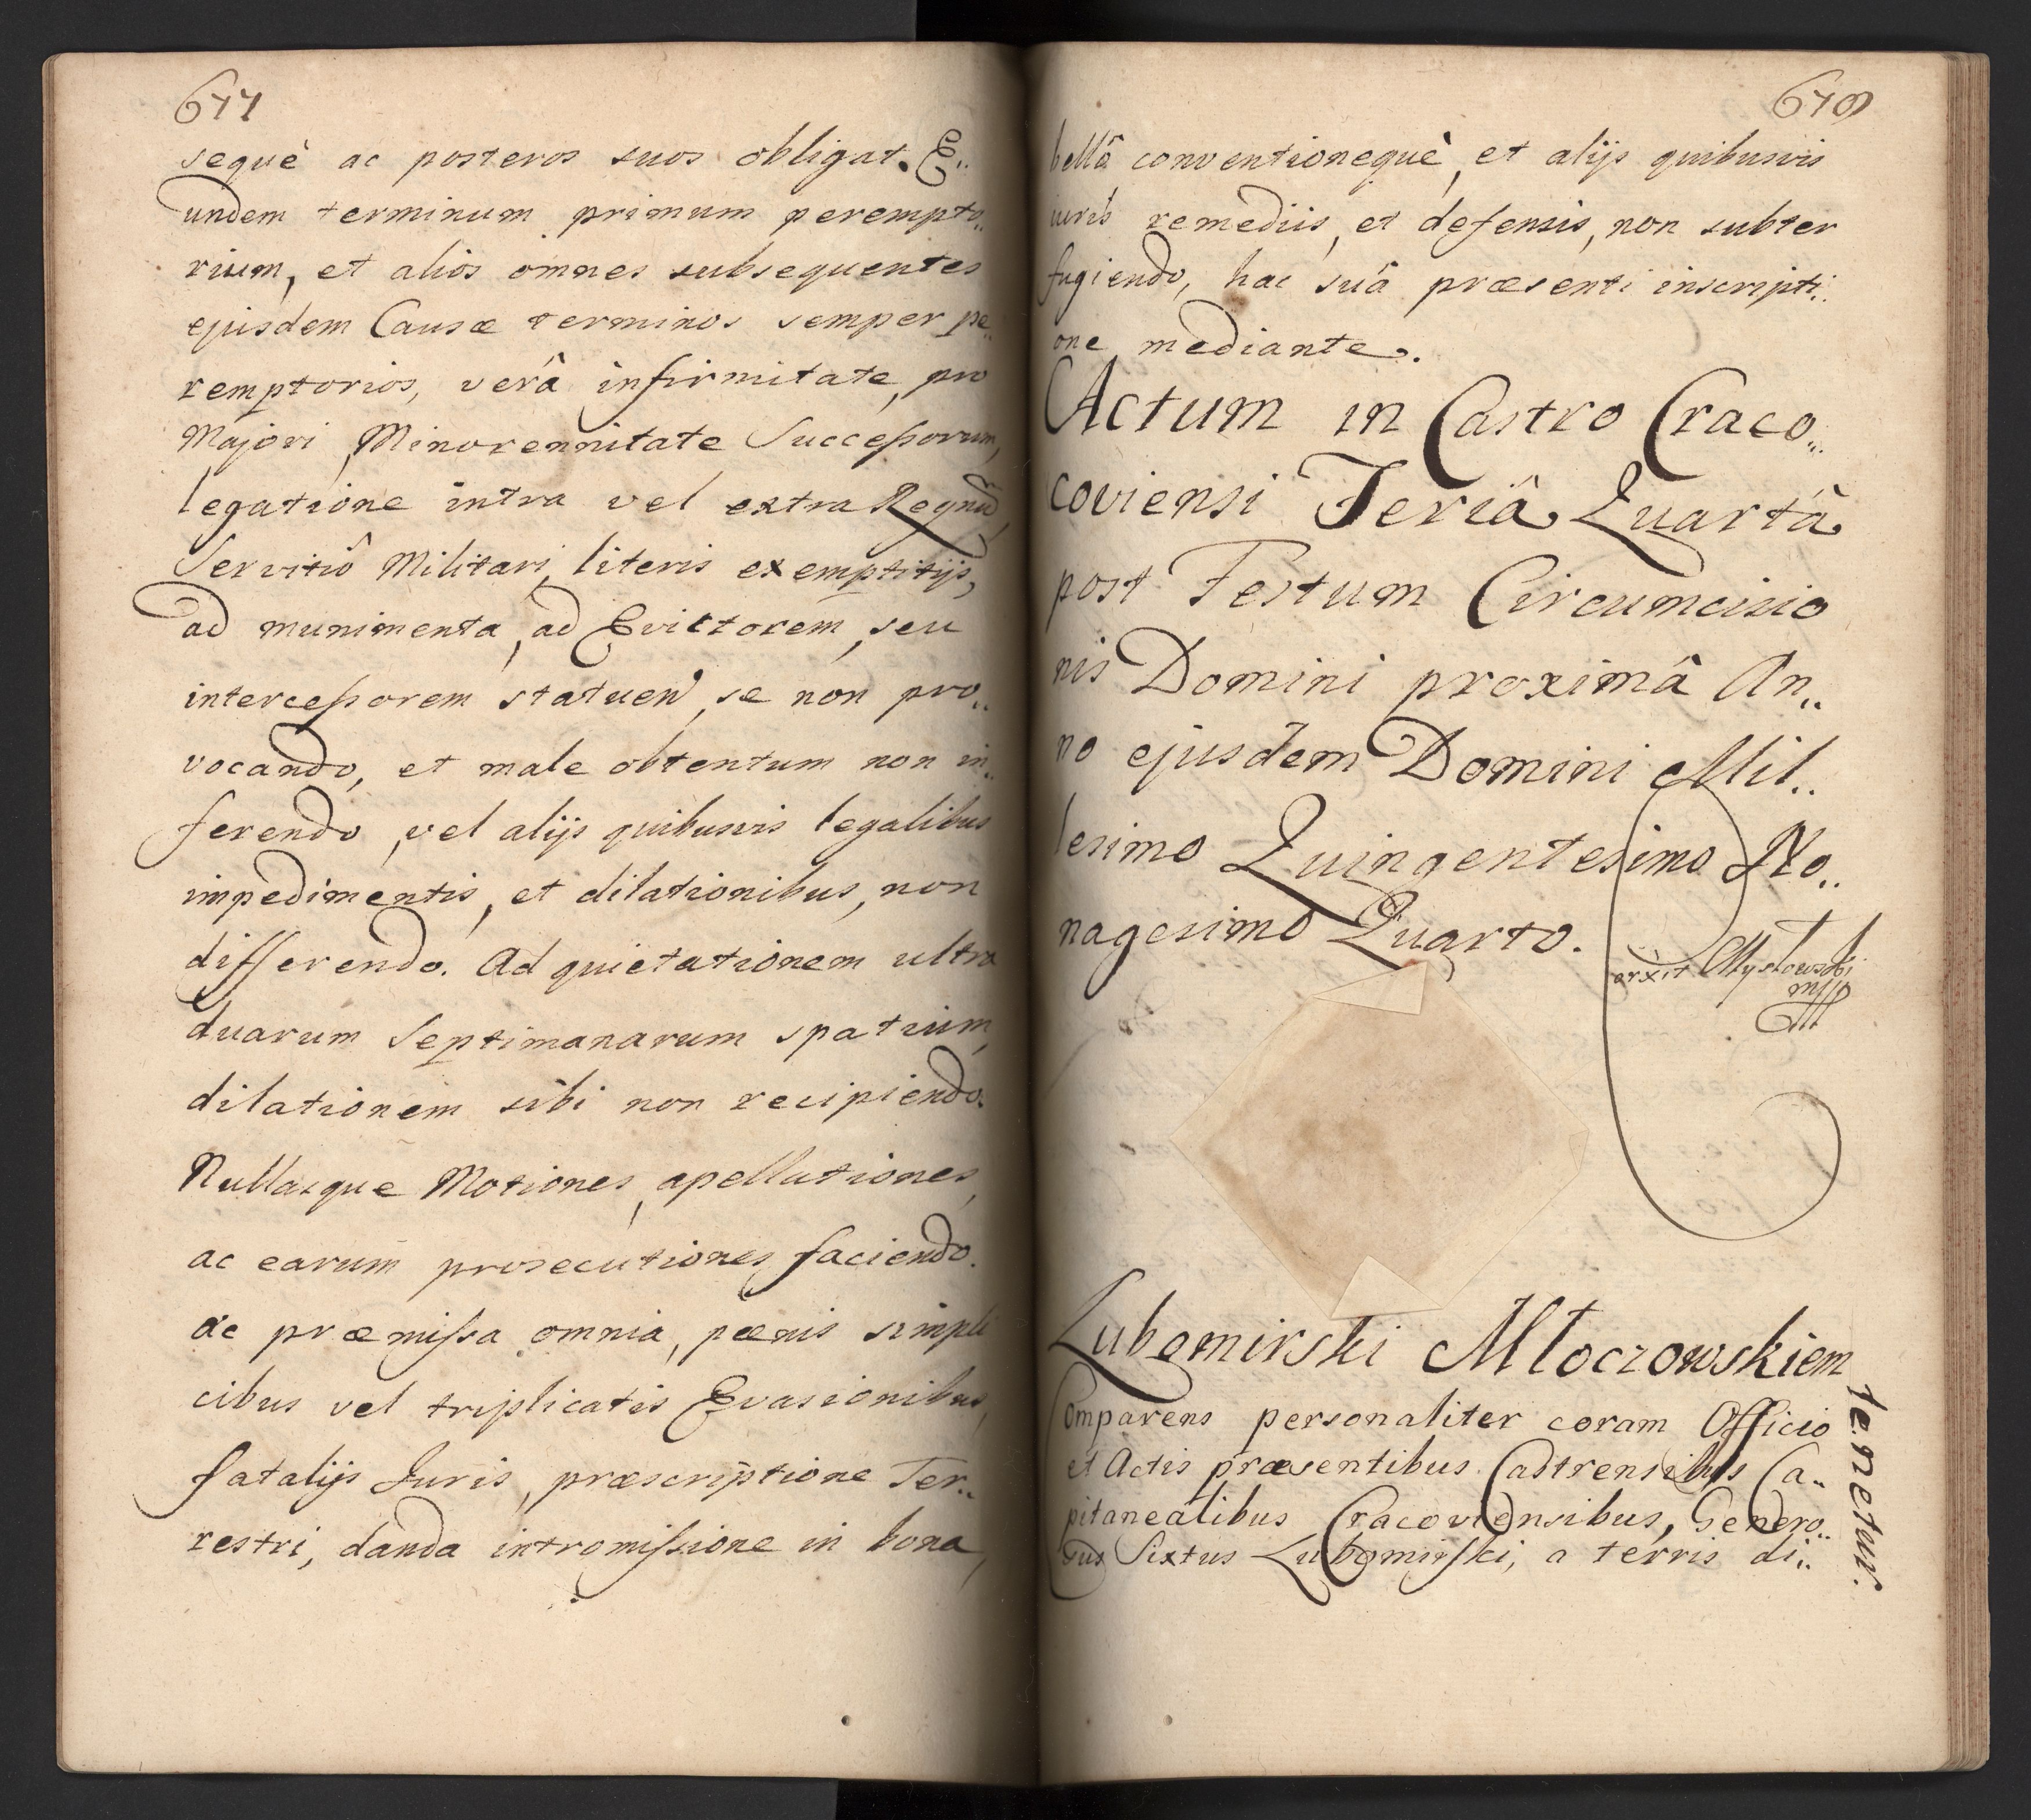 677
sequè ac posteros suos obligat. E..
undem terminum primum perempto..
rium, et alios omnes subsequentes
ejusdem Causæ terminos semper pe..
remptorios, verâ infirmitate, pro
Majori, Minorennitate Successorum,
legatione intra vel extra Regnũ,
Servitiô Militari, literis exemptitijs,
ad munimenta, ad Evictorem, seu
intercessorem statuen̄, se non pro..
vocando, et male obtentum non in..
ferendo, vel alijs quibusvis legalibus
impedimentis, et dilationibus, non
differendo. Ad quietationem ultra
duarum Septimanarum spatium,
dilationem sibi non recipiendo.
Nullasque Motiones, apellationes,
ac earum prosecutiones faciendo.
ac præmissa omnia, pœnis simpli
cibus vel triplicatis Evasionibus,
fatalijs Juris, præscriptione Ter..
restri, danda intromissione in bona,
678
bellâ conventionequè, et alijs quibusvis
iuris remediis, et defensis, non subter
fugiendo, hac suâ præsenti inscripti..
one mediante.
Actum in Castro Craco..
coviensi Feriâ Quartâ
post Festum Circumcisio
nis Domini proximâ An..
no ejusdem Domini Mil..
lesimo Quingentesimo No..
nagesimo Quarto.
Mysłowski
mpp
Lubomirski Młoczowskiem
tenetur.
Comparens personaliter coram Officio
et Actis præsentibus Castrensibus Ca..
pitanealibus Cracoviensibus, Genero..
sus Sixtus Lubomirski, a terris di..